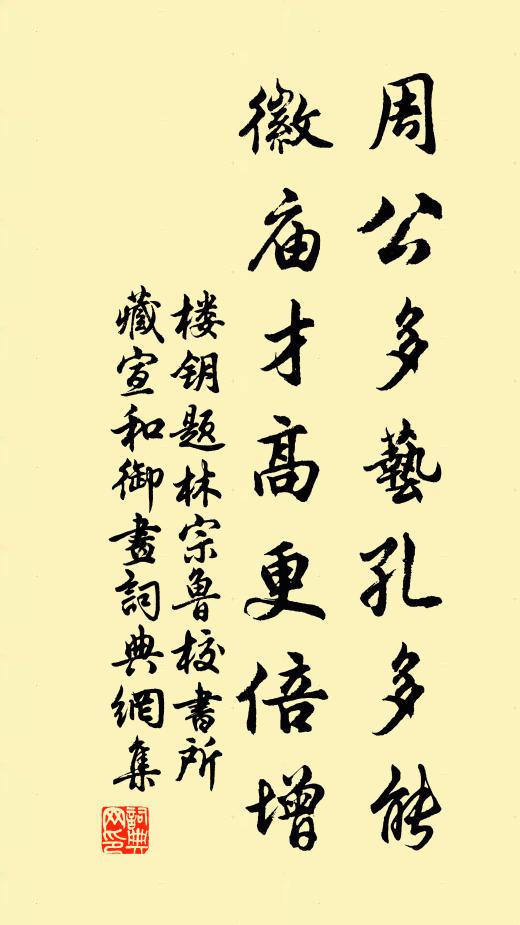 周公多藝孔多能
徽庙才高更倍增
楼钥题林宗魯校書所
藏宣和御畫詞典網集
詞典
网印